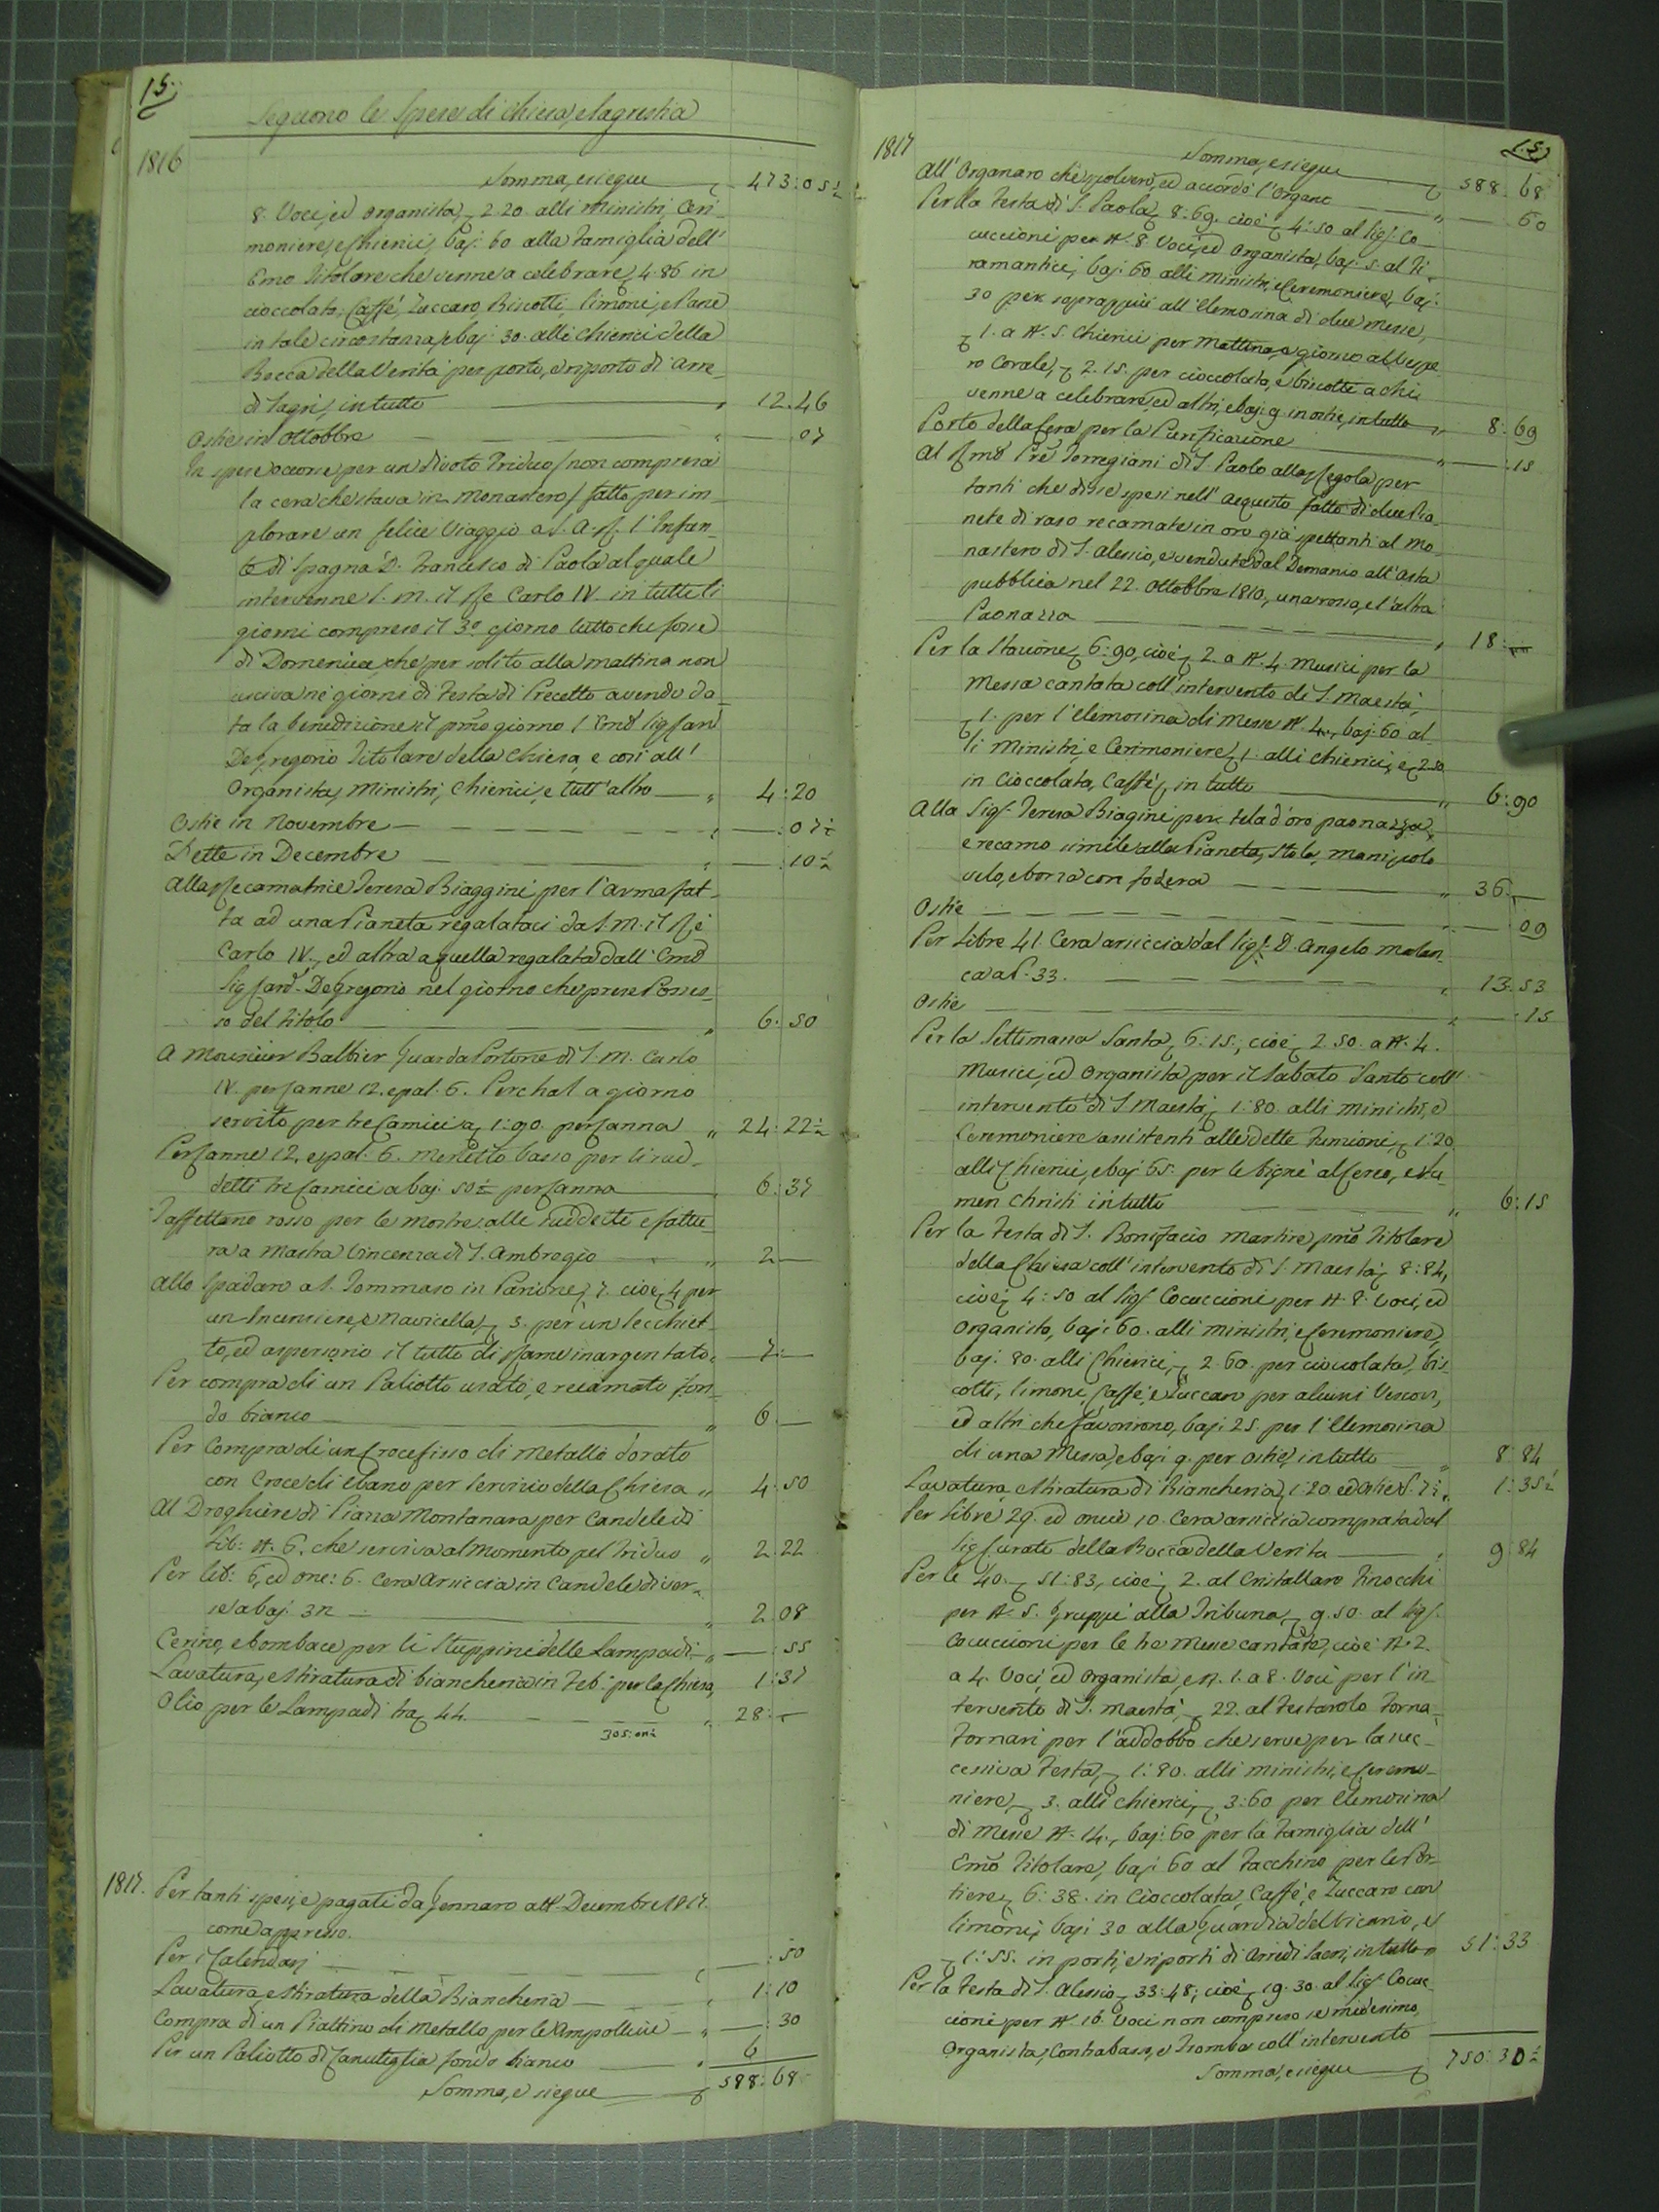 15.
Sequono le Spese di Chiesa, e Sagrestia
1816
Somma, e siegue 473:05½
8. Voci, ed Organista, 2.20. alli Ministri, Ceri-
moniere, e Chierici, baj: 60 alla Famiglia dell'
Emo Titolare che venne a celebrare, 4:86 in
cioccolata, Caffè, Zuccaro, Biscotti, limoni, e Pane
in tale circostanza, e baj: 30. alli Chierici della
Bocca della Verità per porto, e riporto di Arre-
di Sagri, in tutto 12.46
Ostie in Ottobbre :07
In spese occorse per un divoto Triduo / non compresa
la cera che stava in Monastero / fatto per im-
plorare un felice Viaggio a S. A. R. l'Infan-
te di Spagna D. Francesco di Paola al quale
intervenne S. M. il Re Carlo IV. in tutti li
giorni compreso il 3º giorno tutto che fosse
di Domenica, che per solito alla mattina non
usciva nè giorni di Festa di Precetto avendo da-
ta la benedizione il pmo giorno l'Emo Sig Card
DeGregorio Titolare della Chiesa, e così all'
Organista, Ministri, Chierici, e tutt'altro 4:20
Ostie in Novembre :07½
Dette in Decembre :10½
Alla Recamatrice Teresa Biaggini per l'arma fat-
ta ad una Pianeta regalataci da S. M. il Rè
Carlo IV., ed altra a quella regalata dall'Emo
Sig Card. DeGregorio nel giorno che prese Posses-
so del titolo 6:50
A Monsieur Balbier Guarda Portone di S. M. Carlo
IV. per Canne 12. e pal. 6. Perchal a giorno
servito per tre Camici a 1:90. per Canna 24:22½
Per Canne 12, e pal: 6. Merletto basso per li sud-
detti tre Camici a baj: 50½ per Canna 6:37
Taffettano rosso per le mostre alle suddette e fattu-
ra a Mastra Vincenza di S. Ambrogio 2
Allo Spadaro a S. Tommaso in Parione, 7. cioè 4 per
un Incensiere, e Navicella, 3. per un Secchiet-
to, ed aspersorio il tutto di Rame inargentato 7:
Per compra di un Paliotto usato, e recamato fon-
do bianco 6.
Per Compra di un Crocefisso di Metallo dorato
con Croce di Ebano per Servizio della Chiesa 4:50
Al Droghiere di Piazza Montanara per Candele di
Lib: N. 6. che serviva al momento pel Triduo 2.22
Per Lib: 6, ed onc: 6. Cera Ariccia in Candele diver-
se a baj: 32 2.08
Cerino, e bombace per li Stuppini delle Lampadi :55
Lavatura, e Stiratura di biancheria in Feb: per la Chiesa, 1:37
Olio per le Lampadi tra 44. 28:
1817. Per tanti spesi, e pagati da Gennaro a tt.º Decembre 1817.
come appresso.
Per i Calendarj :50
Lavatura, e Stiratura della Biancheria 1:10
Compra di un Piattino di Metallo per le Ampolline :30
Per un Paliotto di Canutiglia fondo bianco 6
Somma, e siegue 588:68
1817
15.
Somma, e siegue 588.68
All'Organaro che spolverò, ed accordò l'Organo 60
Per la Festa di S. Paola 8:69. cioè 4:50 al Sig. Co-
cuccioni per N. 8. Voci, ed Organista, baj: 5. al Ti-
ramantici, baj: 60. alli Ministri, e Ceremoniere, baj:
30 per soprappiù all'Elemosina di due Messe,
1. a N. 5. Chierici per Mattina, e giorno al Vespe-
ro Corale, 2.15. per cioccolata, e biscotti a chi
venne a celebrare, ed altri, e baj: 9. in ostie, in tutto 8:69
Porto della Cera per la Purificazione :15
Al Rmo Pre Torregiani di S. Paolo alla Regola per
tanti che disse spesi nell'acquisto fatto di due Pia-
nete di raso recamate in oro già spettanti al Mo-
nastero di S. Alessio, e vendute dal Demanio all'Asta
pubblica nel 22. Ottobbre 1810., una rossa, e l'altra
Paonazza 18:
Per la Stazione 6:90, cioè 2. a N. 4. Musici per la
Messa cantata coll'intervento di S. Maestà,
1. per l'Elemosina di Messe N. 4., baj: 60 al-
li Ministri, e Cerimoniere, 1. alli Chierici, e 2.30.
in Cioccolata, Caffè, in tutto 6:90
Alla Sigra Teresa Biagini per tela d'oro paonazza,
e recamo simile alla Pianeta, Stola, Manipolo
velo, e borsa con fodera 36.
Ostie 09
Per Libre 41 Cera ariccia dal Sigr D. Angelo Molen-
ca a P. 33. 13.53
Ostie :15
Per la Settimana Santa 6:15., cioè 2.50. a N. 4.
Musici, ed Organista per il Sabato Santo coll'
intervento di S. Maestà, 1:80. alli Ministri, e
Ceremoniere assistenti alle dette Funzioni, 1:20
alli Chierici, e baj 65. per le bignè al Cereo, e Lu-
men Christi in tutto 6:15
Per la Festa di S. Bonifacio Martire pmo Titolare
della Chiesa coll'intervento di S. Maestà, 8:84,
cioè 4:50 al Sigr Cocuccioni per N. 8. Voci, ed
Organista, baj: 60. alli Ministri, e Ceremoniere,
baj: 80. alli Chierici, 2.60. per cioccolata, bis-
cotti, limoni, Caffè, e Zuccaro per alcuni Vescovi,
ed altri che favorirono, baj: 25. per l'Elemosina
di una Messa, e baj: 9. per ostie, in tutto 8:84
Lavatura, e Stiratura di Biancheria, 1:20 ed ostie 1:35½
Per Libre 29. ed oncie 10. Cera ariccia comprata dal
Sig Curato della Bocca della Verità 9:84
Per le 40. 51:83, cioè 2. al Cristallaro Finocchi
per N. 5. Gruppi alla Tribuna, 9.50. al Sigr
Cocuccioni per le tre Messe cantate, cioè N. 2.
a 4. Voci, ed Organista, e N. 1. a 8. Voci per l'in-
tervento di S. Maestà, 22. al Festarolo Forna-
Fornari per l'addobbo che serve per la suc-
cessiva Festa, 1:80. alli Ministri, e Ceremo-
niere, 3. alli Chierici, 3:60 per Elemosina
di Messe N. 14., baj: 60 per la Famiglia dell'
Emo Titolare, baj: 60 al Facchino per le Por-
tiere, 6:38. in Cioccolata, Caffè, e Zuccaro con
limoni, baj: 30 alla Guardia del Vicario, e
1:55. in porti, e riporti di Arredi Sacri, in tutto 51:33
Per la Festa di S. Alessio 33:48; cioè 19.30. al Sigr Cocuc-
cioni per N. 16. Voci non compreso se medesimo,
Organista, Contrabasso, e Tromba coll'intervento
Somma, e siegue 750:30½